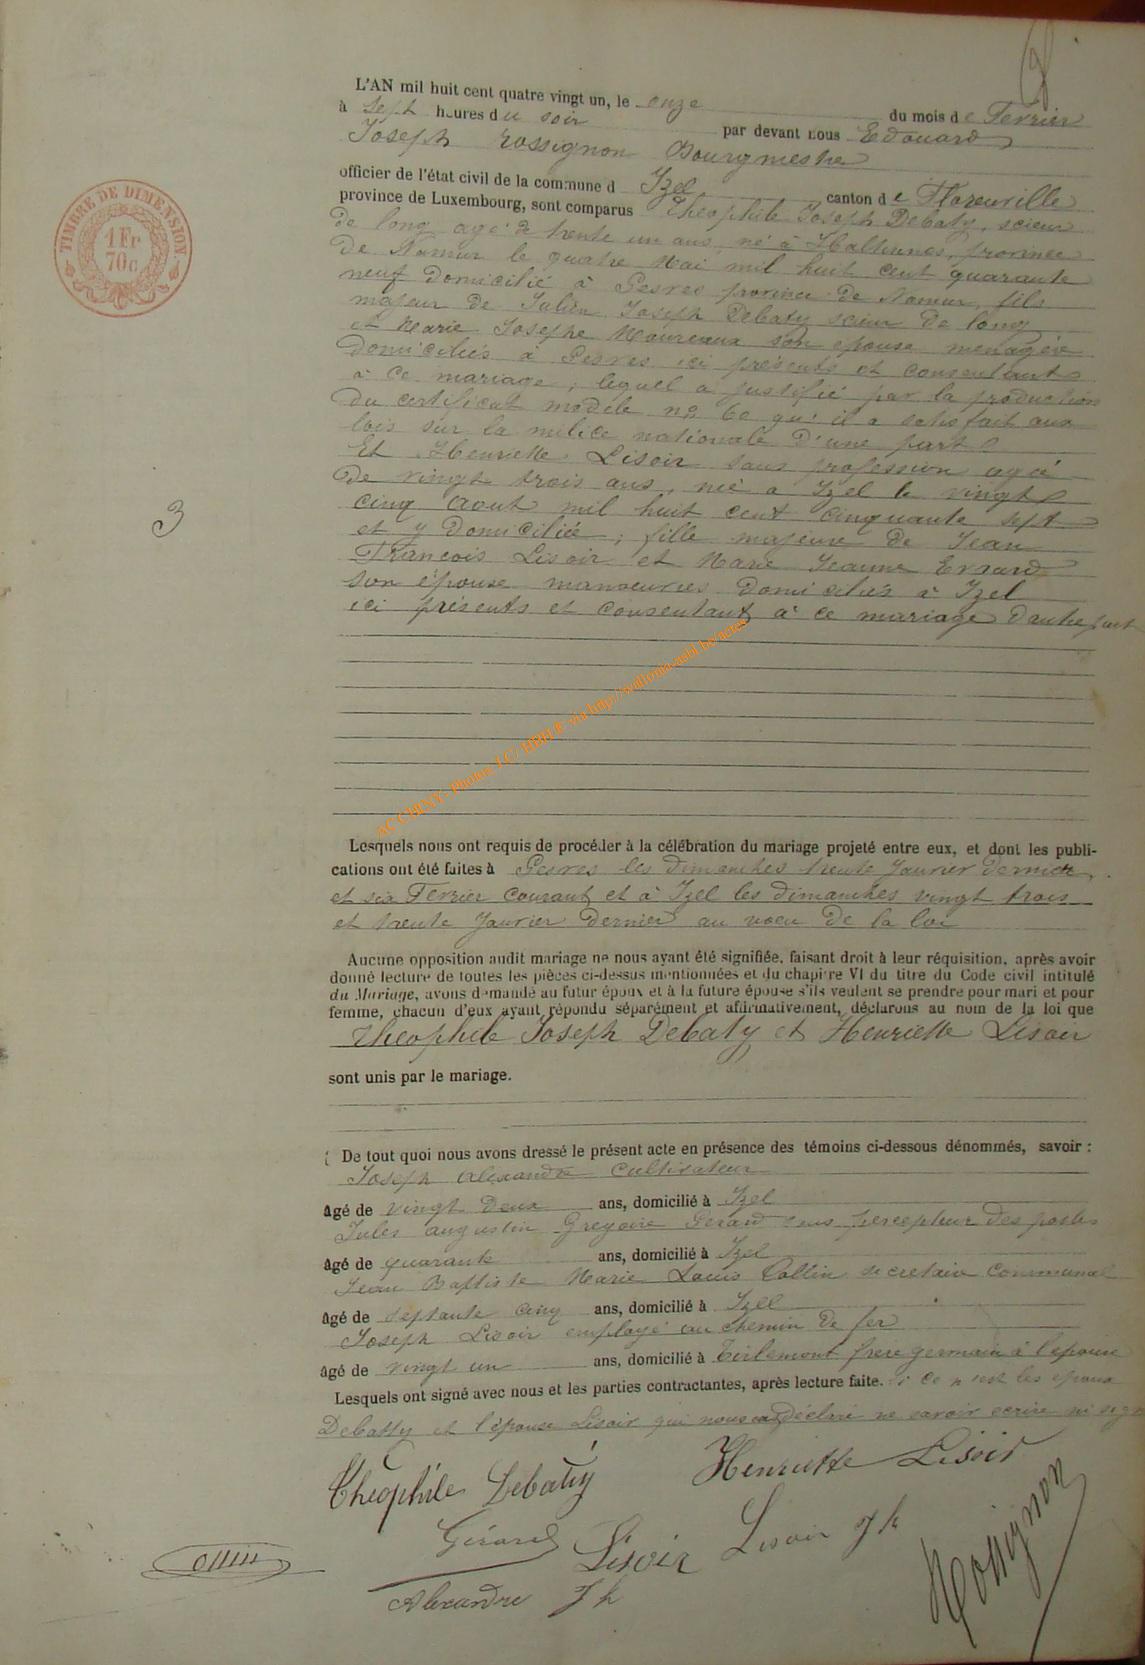 TIMBRE DE DIMENSION
1 Fr
70c
L'AN mil huit cent quatre vingt un, le onze du mois de Fevrier
à Sept heures du soir par devant nous Edouard
Joseph rossignon Bourgmestre
officier de l'état civil de la commune d Izel canton de Florenville
province de Luxembourg, sont comparus Théophile Joseph Debaty, scieur
de long agé de trente un ans, né à province
de Namur le quatre Mai mil huit cent quarante
neuf domicilié à Gesves province de Namur, fils
majeur de Julien Joseph Debaty scieur de long
et Marie Josephe Moureaux son epouse menagère
domiciliés à Gesves ici présents et consentant
à ce mariage, lequel a justifié par la production
du certificat modèle no qu'il a satisfait aux
lois sur la milice nationale d'une part
Et Henriette Lisoir sans profession agée
de vingt trois ans, née a Izel le vingt
cinq Aout mil huit cent cinquante sept
et y domiciliée, fille majeure de Jean
Francois Lisoir et Marie Jeanne Errard
son épouse manoeuvres domiciliés à Izel
ici présents et consentant à ce mariage d'autre part
3
AC CHINY - Photos via http://wallonia-asbl.be/actes
Lesquels nous ont requis de procéder à la célébration du mariage projeté entre eux, et dont les publi-
cations ont été faites à Gesves les dimanches trente Janvier dernier,
et six Fevrier courant et à Izel les dimanches vingt trois
et trente Janvier dernier au voeu de la loi
Aucune opposition audit mariage ne nous ayant été signifiée, faisant droit à leur réquisition, après avoir
donné lecture de toutes les pièces ci-dessus mentionnées et du chapitre VI du titre du Code civil intitulé
du Mariage, avons demandé au futur époux et à la future épouse s'ils veulent se prendre pour mari et pour
femme, chacun d'eux ayant répondu séparément et affirmativement, déclarons au nom de la loi que
Théophile Joseph Debaty et Henriette Lisoir
sont unis par le mariage.
De tout quoi nous avons dressé le présent acte en présence des témoins ci-dessous dénommés, savoir :
Joseph Alexandre cultivateur
âgé de vingt deux ans, domicilié à Izel
Jules augustin Gregoire Gerard percepteur des postes
âgé de quarante ans, domicilié à Izel
Jean Baptiste Marie Louis Collin secretaire communal
âgé de septante cinq ans, domicilié à Izel
Joseph Lisoir employé au chemin de fer
âgé de vingt un ans, domicilié à Tirlemont frere germain à l'epouse
Lesquels ont signé avec nous et les parties contractantes, après lecture faite. Si ce n'est les epoux
Debatty et l'épouse Lisoir qui nous ont déclaré ne savoir ecrire ni sign
Théophile Debatiy Henriette Lisoir
Gérard Lisoir Lisoir Jh
Alexandre Jh
Rossignon